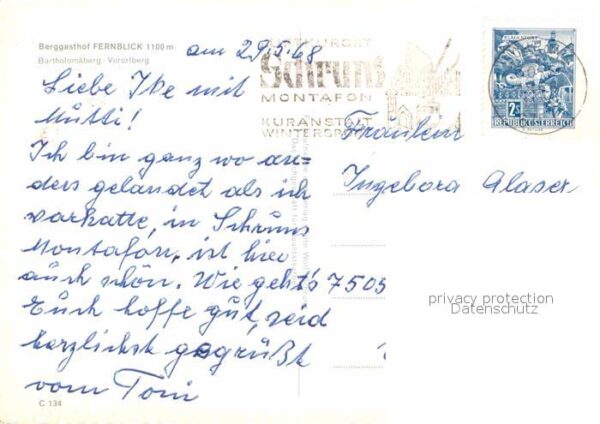 Berggasthof FERNBLICK 1100 m
Bartholomäberg - Vorarlberg
am 29.5.68
LUFTKURORT
Schruns
MONTAFON
KURANSTALT
WINTERSPORT
KLAGENFURT
2
REPUBLIK ÖSTERREICH
Liebe Ike mit
Mutti!
Ich bin ganz wo an-
ders gelandet als ich
vorhatte, in Schruns
Montafon, ist hier
auch schön. Wie geht's
Euch hoffe gut, seid
herzlichst gegrüßt
vom Toni
Fräulein
Ingebora Glaser
7505
privacy protection
Datenschutz
C 134